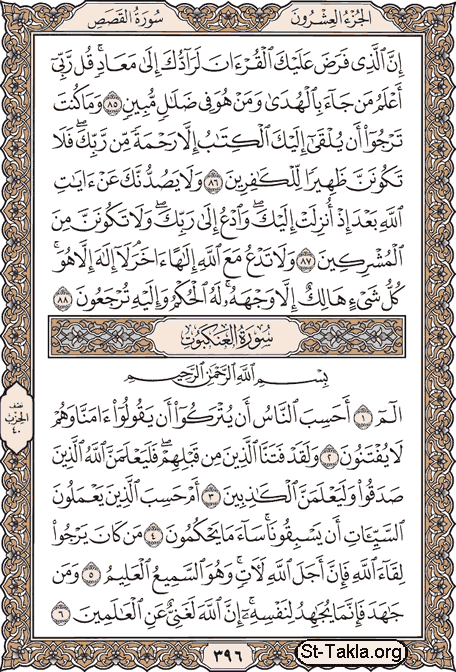 سُورَةُ القَصَصِ
الجُزْءُ العِشْرُونَ
إِنَّ ٱلَّذِى فَرَضَ عَلَيْكَ ٱلْقُرْءَانَ لَرَآدُّكَ إِلَىٰ مَعَادٍۚ قُل رَّبِّىٓ
أَعْلَمُ مَن جَآءَ بِٱلْهُدَىٰ وَمَنْ هُوَ فِى ضَلَٰلٍ مُّبِينٍ ٨٥ وَمَا كُنتَ
تَرْجُوٓا۟ أَن يُلْقَىٰٓ إِلَيْكَ ٱلْكِتَٰبُ إِلَّا رَحْمَةً مِّن رَّبِّكَۖ فَلَا
تَكُونَنَّ ظَهِيرًا لِّلْكَٰفِرِينَ ٨٦ وَلَا يَصُدُّنَّكَ عَنْ ءَايَٰتِ
ٱللَّهِ بَعْدَ إِذْ أُنزِلَتْ إِلَيْكَۖ وَٱدْعُ إِلَىٰ رَبِّكَۖ وَلَا تَكُونَنَّ مِنَ
ٱلْمُشْرِكِينَ ٨٧ وَلَا تَدْعُ مَعَ ٱللَّهِ إِلَٰهًا ءَاخَرَۘ لَآ إِلَٰهَ إِلَّا هُوَۚ
كُلُّ شَىْءٍ هَالِكٌ إِلَّا وَجْهَهُۥۚ لَهُ ٱلْحُكْمُ وَإِلَيْهِ تُرْجَعُونَ ٨٨
سُورَةُ العَنكَبُوتِ
بِسْمِ ٱللَّهِ ٱلرَّحْمَٰنِ ٱلرَّحِيمِ
الٓمٓ ١ أَحَسِبَ ٱلنَّاسُ أَن يُتْرَكُوٓا۟ أَن يَقُولُوٓا۟ ءَامَنَّا وَهُمْ
لَا يُفْتَنُونَ ٢ وَلَقَدْ فَتَنَّا ٱلَّذِينَ مِن قَبْلِهِمْۖ فَلَيَعْلَمَنَّ ٱللَّهُ ٱلَّذِينَ
صَدَقُوا۟ وَلَيَعْلَمَنَّ ٱلْكَٰذِبِينَ ٣ أَمْ حَسِبَ ٱلَّذِينَ يَعْمَلُونَ
ٱلسَّيِّـَٔاتِ أَن يَسْبِقُونَاۚ سَآءَ مَا يَحْكُمُونَ ٤ مَن كَانَ يَرْجُوا۟
لِقَآءَ ٱللَّهِ فَإِنَّ أَجَلَ ٱللَّهِ لَءَاتٍۚ وَهُوَ ٱلسَّمِيعُ ٱلْعَلِيمُ ٥ وَمَن
جَٰهَدَ فَإِنَّمَا يُجَٰهِدُ لِنَفْسِهِۦٓۚ إِنَّ ٱللَّهَ لَغَنِىٌّ عَنِ ٱلْعَٰلَمِينَ ٦
نصف
الحزب
٤٠
٣٩٦
St-Takla.org